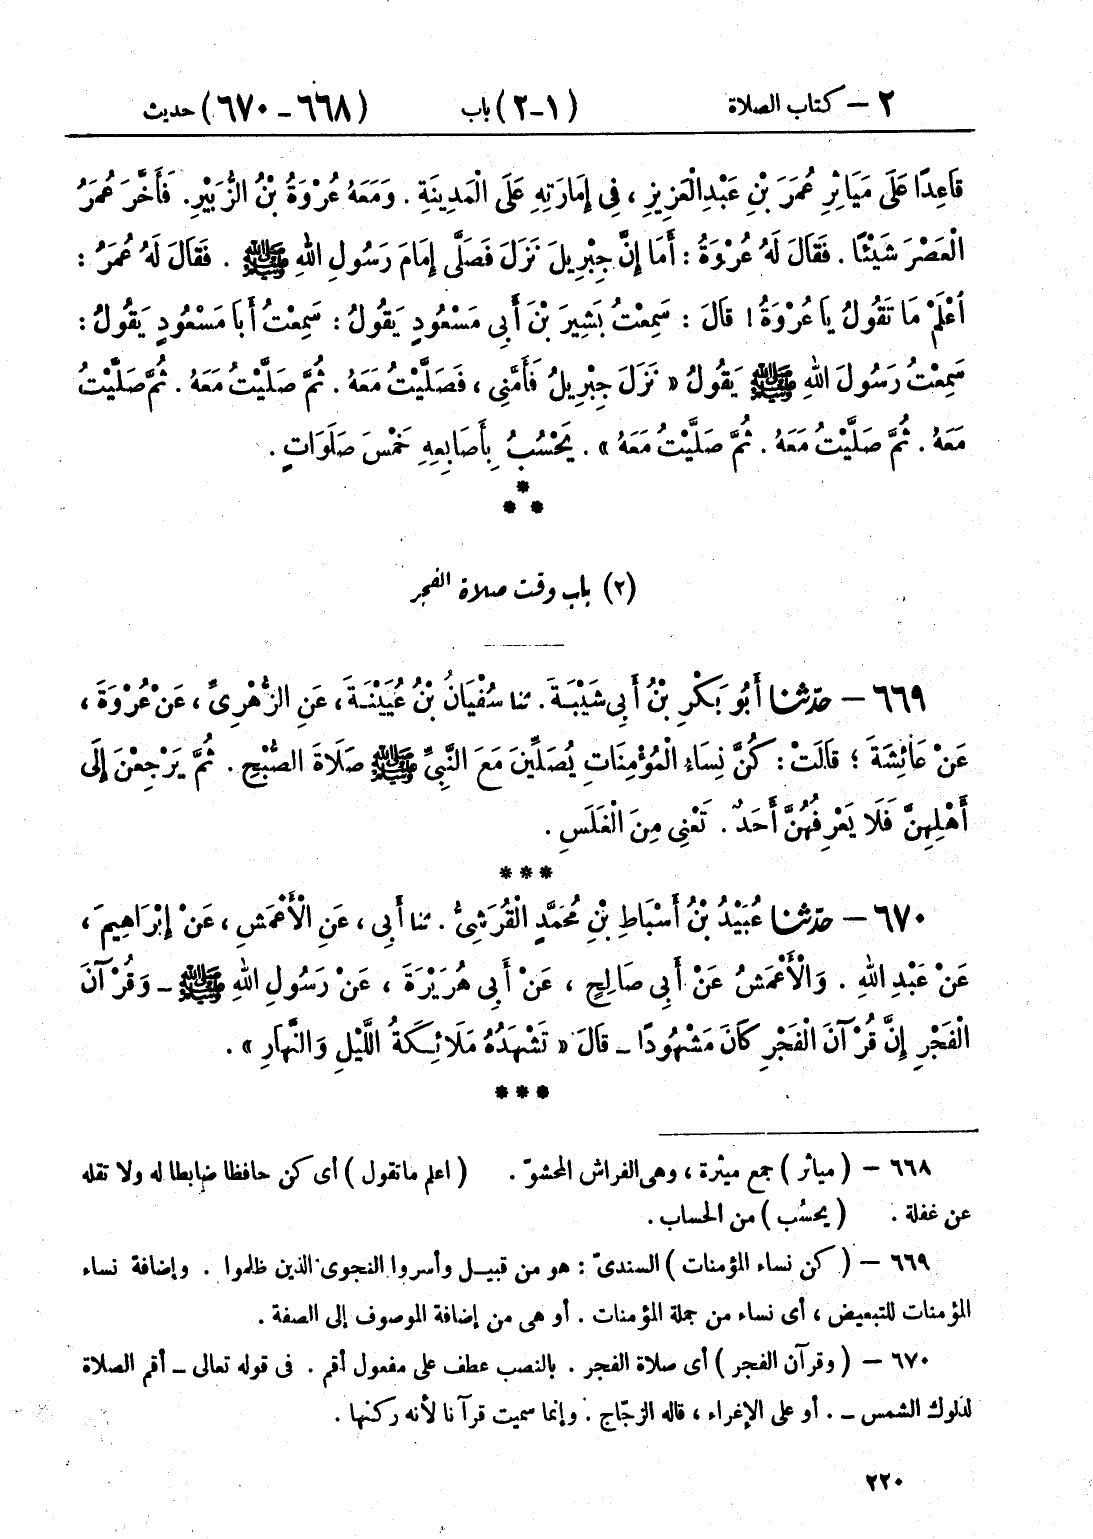 ٢ – كتاب الصلاة (١-٢) باب (٦٦٨ - ٦٧٠) حديث
قَاعِدًا عَلَى مَيَاثِرِ عُمَرَ بْنِ عَبْدِالْعَزِيزِ ، فِي إِمَارَتِهِ عَلَى الْمَدِينَةِ . وَمَعَهُ عُرْوَةُ بْنُ الزُّبَيْرِ. فَأَخَّرَ عُمَرُ
الْعَصْرَ شَيْئًا . فَقَالَ لَهُ عُرْوَةُ : أَمَا إِنَّ جِبْرِيلَ نَزَلَ فَصَلَّى إِمَامَ رَسُولِ اللهِ ﷺ . فَقَالَ لَهُ عُمَرُ :
اُعْلَمْ مَا تَقُولُ يَا عُرْوَةُ ! قَالَ : سَمِعْتُ بَشِيرَ بْنَ أَبِي مَسْعُودٍ يَقُولُ : سَمِعْتُ أَبَا مَسْعُودٍ يَقُولُ :
سَمِعْتُ رَسُولَ اللهِ ﷺ يَقُولُ « نَزَلَ جِبْرِيلُ فَأَمَّنِي ، فَصَلَّيْتُ مَعَهُ . ثُمَّ صَلَّيْتُ مَعَهُ . ثُمَّ صَلَّيْتُ
مَعَهُ . ثُمَّ صَلَّيْتُ مَعَهُ . ثُمَّ صَلَّيْتُ مَعَهُ » . يَحْسُبُ بِأَصَابِعِهِ خَمْسَ صَلَوَاتٍ .
*
* *
(٢) باب وقت صلاة الفجر
٦٦٩ – حدّثنا أَبُو بَكْرِ بْنُ أَبِي شَيْبَةَ . ثنا سُفْيَانُ بْنُ عُيَيْنَةَ ، عَنِ الزُّهْرِيِّ ، عَنْ عُرْوَةَ ،
عَنْ عَائِشَةَ ؛ قَالَتْ : كُنَّ نِسَاءِ الْمُؤْمِنَاتِ يُصَلِّينَ مَعَ النَّبِيِّ ﷺ صَلَاةَ الصُّبْحِ . ثُمَّ يَرْجِعْنَ إِلَى
أَهْلِهِنَّ فَلَا يَعْرِفُهُنَّ أَحَدٌ . تَعْنِي مِنَ الْغَلَسِ .
***
٦٧٠ – حدّثنا عُبَيْدُ بْنُ أَسْبَاطِ بْنِ مُحَمَّدٍ الْقُرَشِيُّ . ثنا أَبِي ، عَنِ الْأَعْمَشِ ، عَنْ إِبْرَاهِيمَ ،
عَنْ عَبْدِ اللهِ . وَالْأَعْمَشُ عَنْ أَبِي صَالِحٍ ، عَنْ أَبِي هُرَيْرَةَ ، عَنْ رَسُولِ اللهِ ﷺ – وَقُرْآنَ
الْفَجْرِ إِنَّ قُرْآنَ الْفَجْرِ كَانَ مَشْهُودًا – قَالَ « تَشْهَدُهُ مَلَائِكَةُ اللَّيْلِ وَالنَّهَارِ » .
***
٦٦٨ – ( مياثر ) جمع ميثرة ، وهى الفراش المحشوّ . ( اعلم ماتقول ) أى كن حافظا ضابطا له ولا تقله
عن غفلة . ( يحسُب ) من الحساب .
٦٦٩ – ( كن نساء المؤمنات ) السندىّ : هو من قبيل وأسروا النجوى الذين ظلموا . وإضافة نساء
المؤمنات للتبعيض ، أى نساء من جملة المؤمنات . أو هى من إضافة الموصوف إلى الصفة .
٦٧٠ – ( وقرآن الفجر ) أى صلاة الفجر . بالنصب عطف على مفعول أقم . فى قوله تعالى – أقم الصلاة
لدلوك الشمس – . أو على الإغراء ، قاله الزجّاج . وإنما سميت قرآنا لأنه ركنها .
٢٢٠